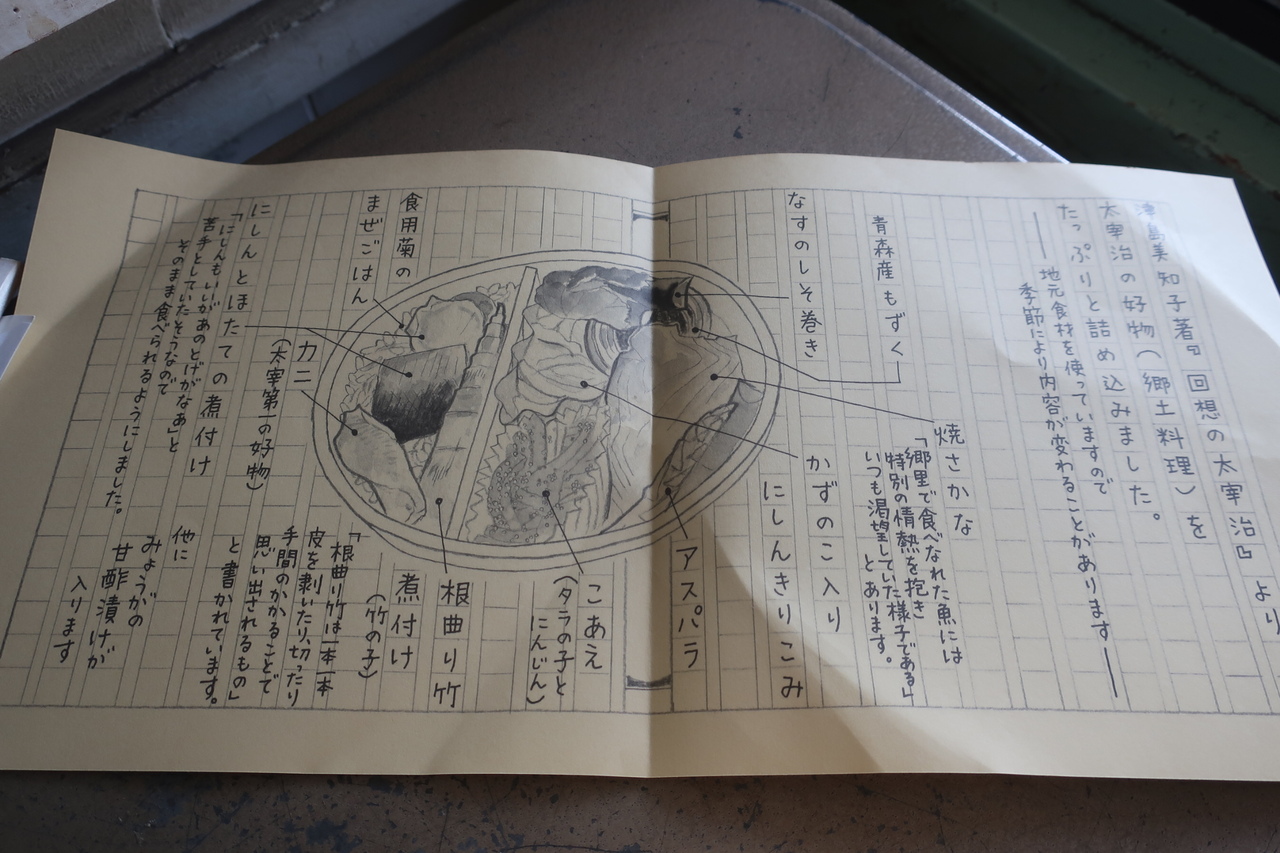 津島美知子著『回想の太宰治』より
太宰治の好物（郷土料理）を
たっぷりと詰め込みました。
――地元食材を使っていますので
季節により内容が変わることがあります――
焼さかな
「郷里で食べなれた魚には
特別の情熱を抱き
いつも渇望していた様子である」
とあります。
青森産もずく
なすのしそ巻き
かずのこ入り
にしんきりこみ
アスパラ
こあえ
（タラの子と
にんじん）
食用菊の
まぜごはん
根曲り竹
煮付け
（竹の子）
「根曲り竹は一本一本
皮を剥いたり、切ったり
手間のかかることで
思い出されるもの」
と書かれています。
カニ
（太宰第一の好物）
にしんとほたての煮付け
「にしんもいいがあのとげがなあ」と
苦手としていたそうなので
そのまま食べられるようにしました。
他に
みょうがの
甘酢漬けが
入ります